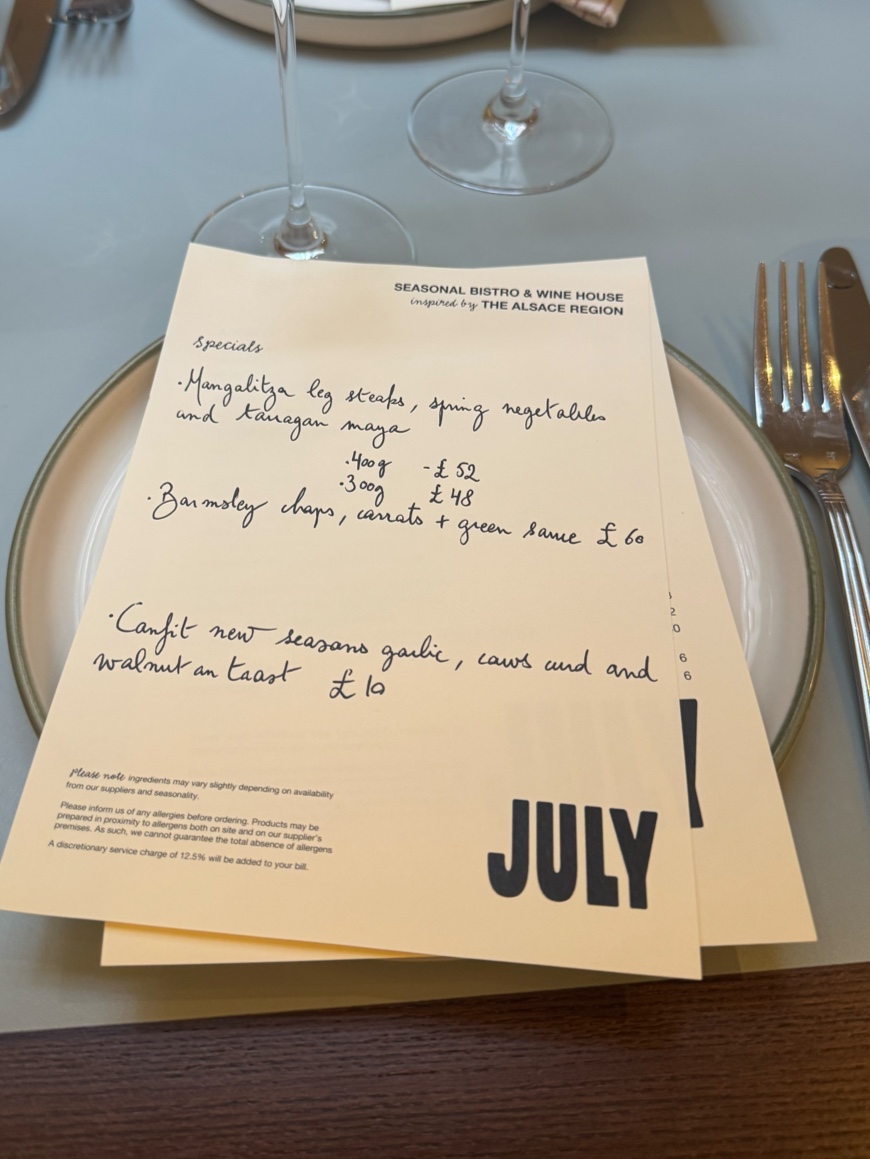 SEASONAL BISTRO & WINE HOUSE
inspired by THE ALSACE REGION
Specials
· Mangalitza leg steaks, spring vegetables
and tarragon mayo
· 400g - £ 52
· 300g £ 48
· Barnsley chops, carrots + green sauce £ 60
· Confit new seasons garlic, cows curd and
walnut on toast £ 10
Please note ingredients may vary slightly depending on availability
from our suppliers and seasonality.
Please inform us of any allergies before ordering. Products may be
prepared in proximity to allergens both on site and on our supplier's
premises. As such, we cannot guarantee the total absence of allergens
A discretionary service charge of 12.5% will be added to your bill.
JULY
2
0
6
6